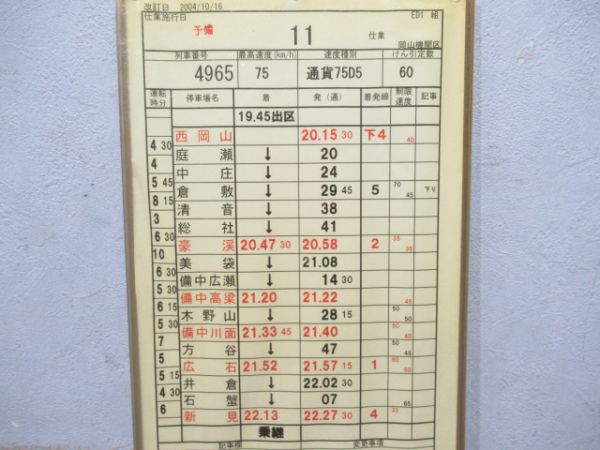 改訂日 2004/10/16 EDI 組
仕業施行日 予備 11 仕業 岡山機関区
列車番号 最高速度(km/h) 速度種別 けん引定数
4965 75 通貨75D5 60
運転時分 停車場名 着 発(通) 着発線 制限速度 記事
19.45出区
西岡山 20.15 30 下4 40
4 30
庭瀬 ↓ 20
4
中庄 ↓ 24
5 45
倉敷 ↓ 29 45 5 70 45 下り
8 15
清音 ↓ 38
3
総社 ↓ 41
6 30
豪渓 20.47 30 20.58 2 35 35
10
美袋 ↓ 21.08
6 30
備中広瀬 ↓ 14 30
5 30
備中高梁 21.20 21.22 45
6 15
木野山 ↓ 28 15 50 45
5 30
備中川面 21.33 45 21.40
7
方谷 ↓ 47 50 45
5
広石 21.52 21.57 15 1 60 60
5 15
井倉 ↓ 22.02 30
4 30
石蟹 ↓ 07 65
6
新見 22.13 22.27 30 4 35
乗継
記事欄 変更事項